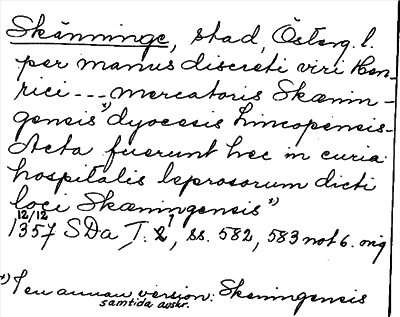 Skänninge, stad, Österg. l.
per manus discreti viri Hen-
rici --- mercatoris Skænin-
gensis*) dyocesis Lincopensis-
Acta fuerunt hec in curia
hospitalis leprosorum dicti
loci Skæningensis*)
12/12
1357 SDa T. 2, ss. 582, 583 not 6. orig
*) I en annan version: Skeningensis
samtida avskr.